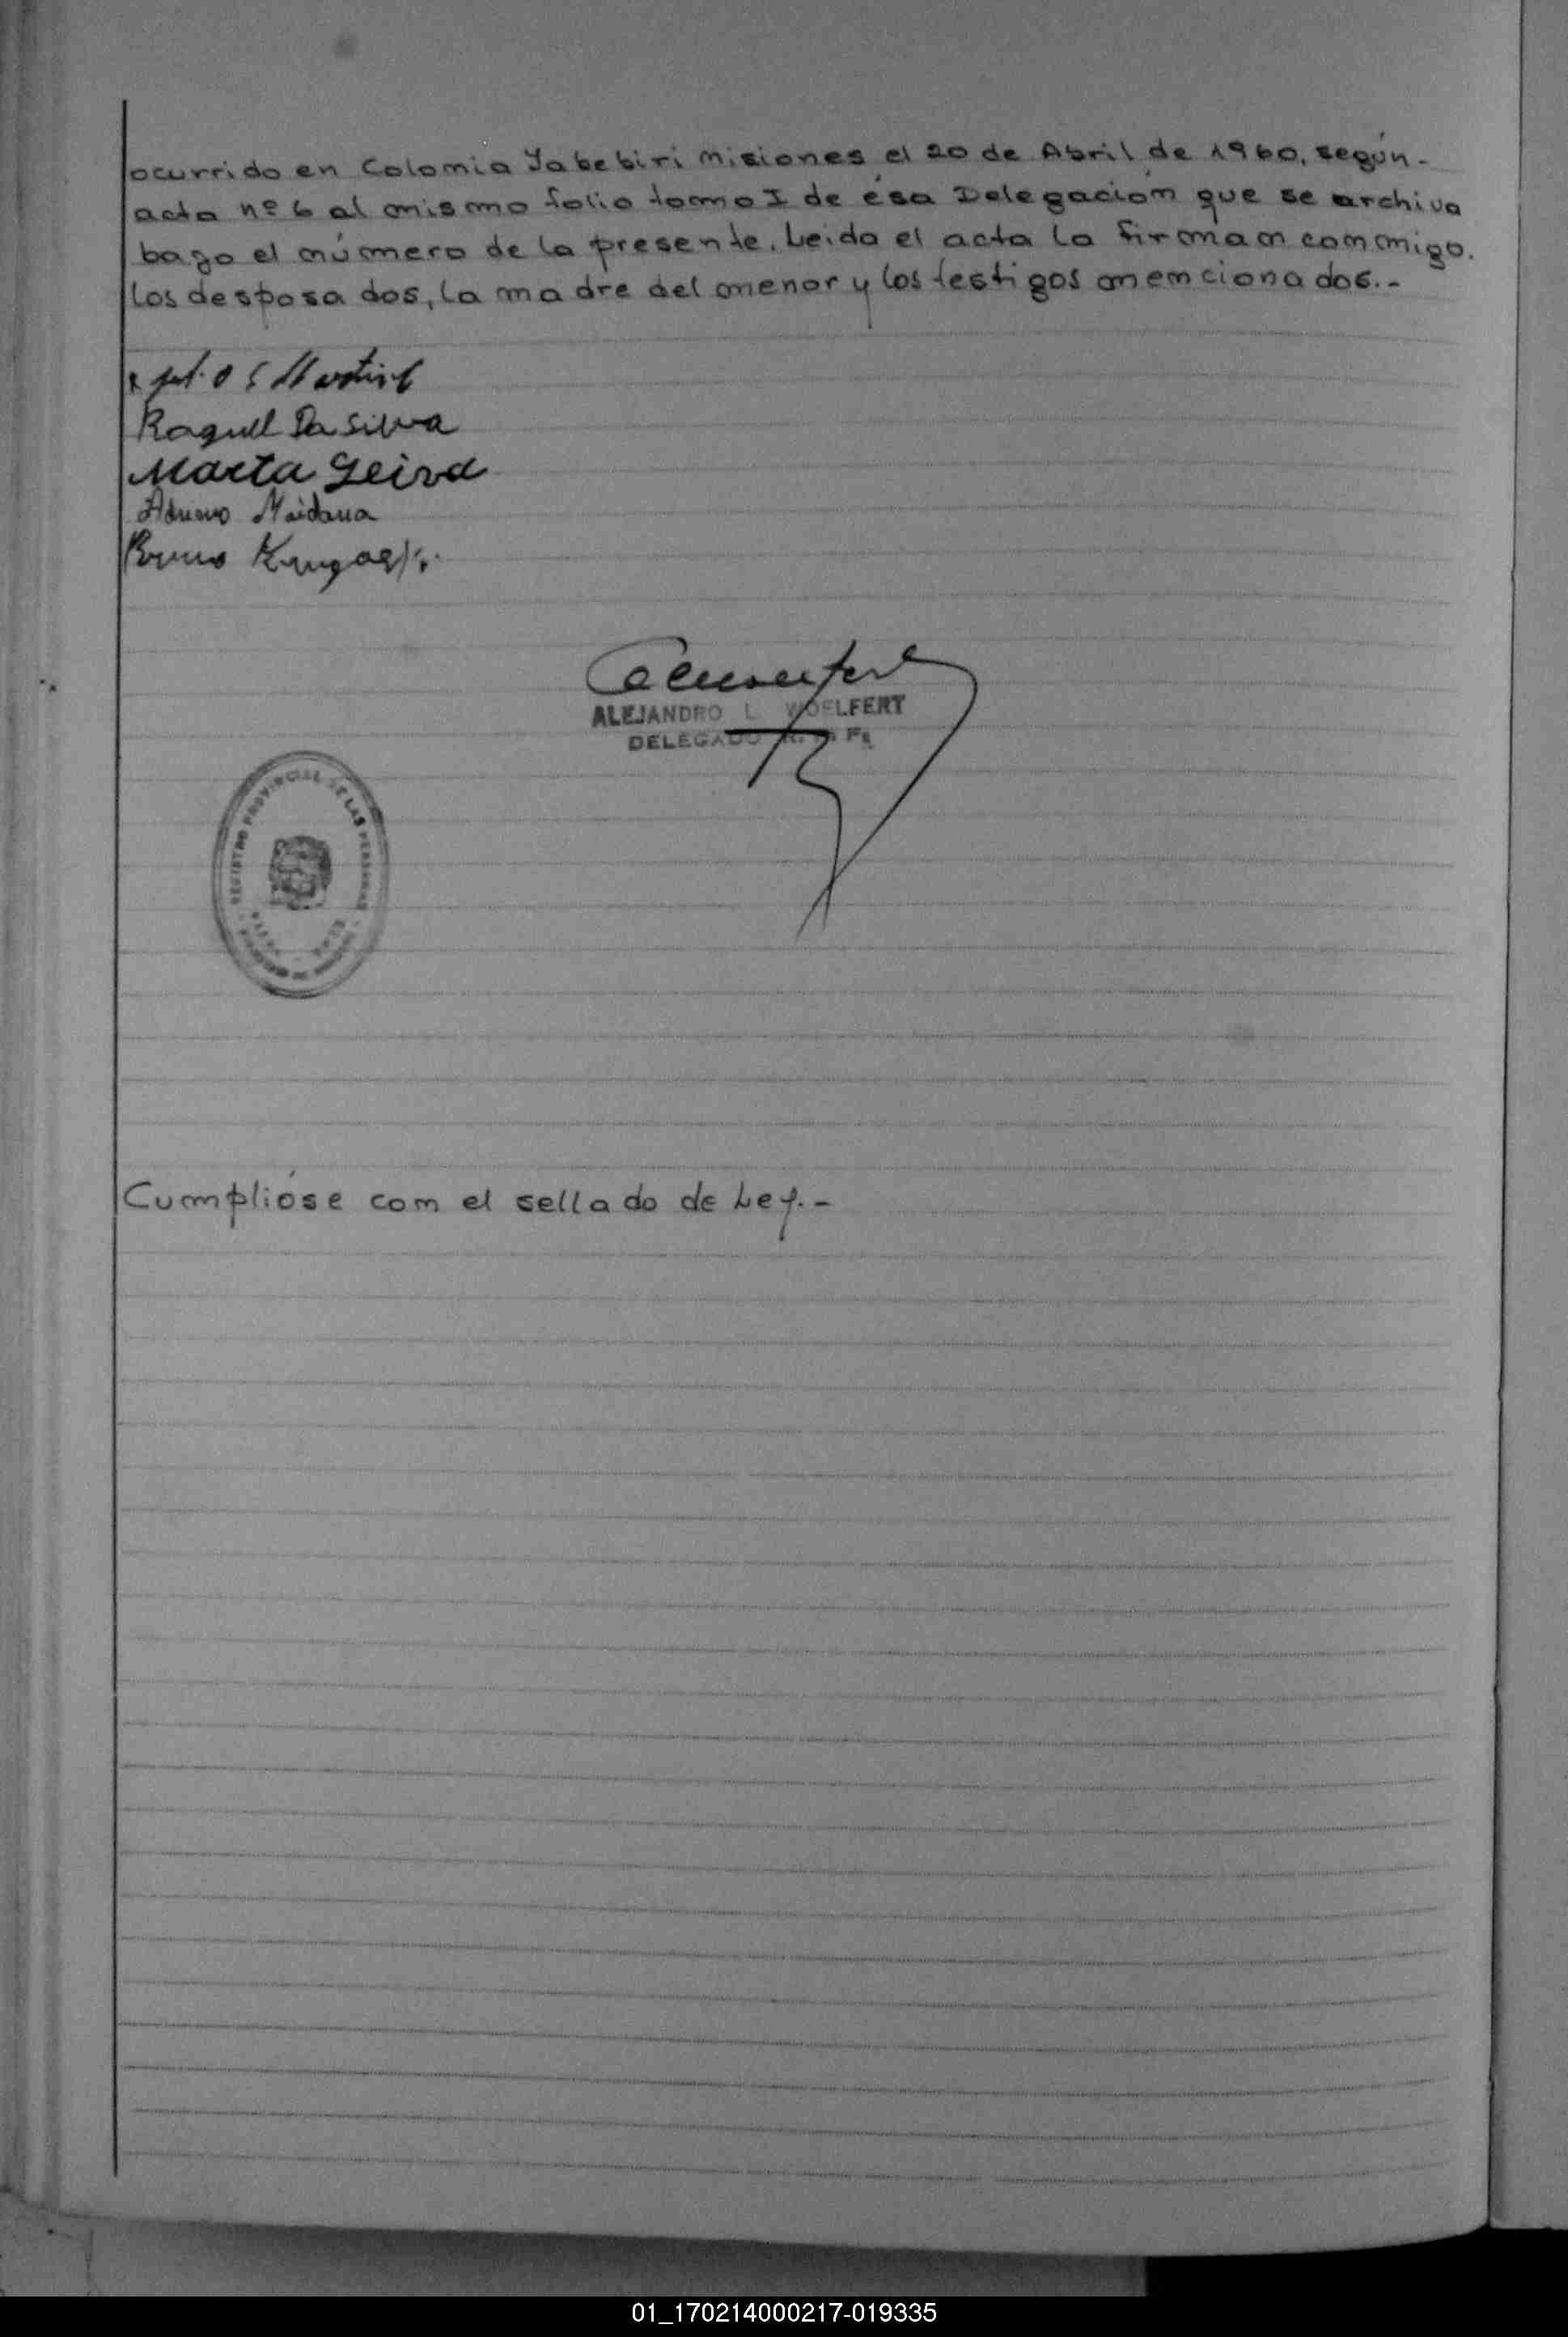 ocurrido en Colonia Yabebiri Misiones el 20 de Abril de 1960, según-
acta nº 6 al mismo folio tomo I de ésa Delegación que se archiva
bajo el número de la presente. Leida el acta la firman conmigo.
los desposados, la madre del menor y los testigos mencionados.-
Raquel Da Silva
Marta Leiva
Maidana
Bruno
ALEJANDRO L WOELFERT
DELEGADO
REGISTRO PROVINCIAL DE LAS PERSONAS
Cumplióse con el sellado de Ley.-
01_170214000217-019335